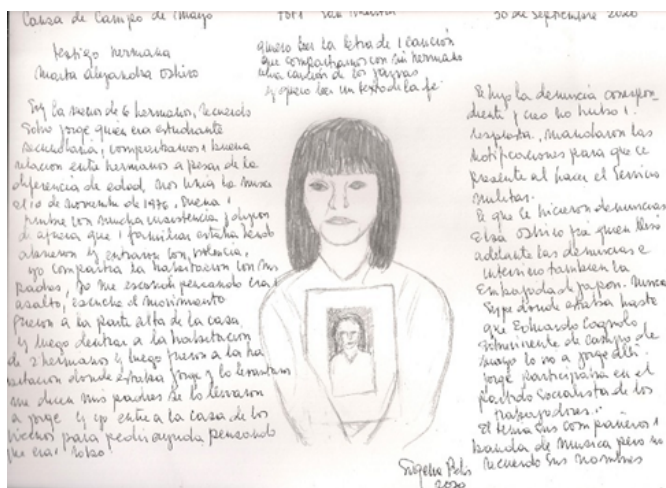 Causa de Campo de Mayo
TOF1 San Martin
30 de Septiembre 2020
testigo hermana
Marta Alejandra Oshiro
quiero leer la letra de 1 canción
que compartiamos con mi hermano
una canción de los Jaivas
y quiero leer un texto de la fe
Soy la menor de 6 hermanos, recuerdo
sobre Jorge quien era estudiante
secundario, compartiamos 1 buena
relacion entre hermanos a pesar de la
diferencia de edad, nos unia la musica
el 10 de noviembre de 1976, suena
timbre con mucha insistencia y dijeron
de afuera que 1 familiar estaba
abrieron y entraron con violencia,
yo compartia la habitacion con mis
padres, yo me escondi pensando era 1
asalto, escuche el movimiento
fueron a la parte alta de la casa
y luego dentras a la habitacion
de 2 hermanos y luego fueron a la ha
bitacion donde estaba Jorge y lo levantaron
me dicen mis padres se lo llevaron
a Jorge y yo entre a la casa de los
vecinos para pedir ayuda pensando
que era 1 robo
Se hizo la denuncia correspon
diente y creo no hubo 1
respuesta, mandaron las
notificaciones para que se
presente al hacer el servicio
militar.
Se que se hicieron denuncias
Elsa Oshiro fue quien llevó
adelante las denuncias e
intervino tambien la
Embajada de Japon. Nunca
supe donde estaba hasta
que Eduardo Cagnolo
sobreviviente de campo de
mayo lo vio a Jorge alli.
Jorge participaba en el
partido socialista de los
trabajadores..
El tenia sus compañeros 1
banda de musica pero no
recuerdo sus nombres
Eugenia Bekeris
2020